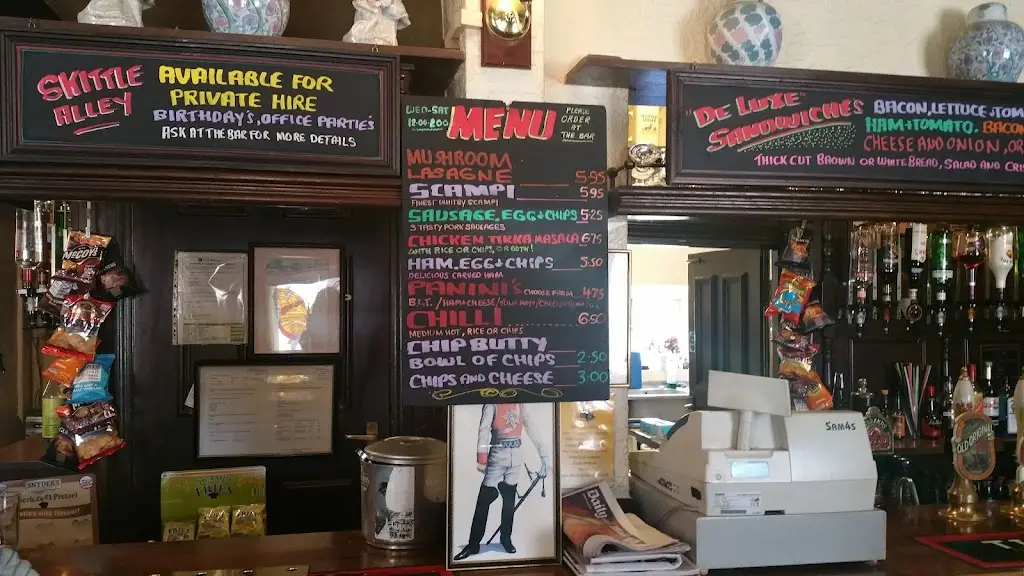 SKITTLE
ALLEY
AVAILABLE FOR
PRIVATE HIRE
BIRTHDAY'S, OFFICE PARTIE'S
ASK AT THE BAR FOR MORE DETAILS
WED-SAT
12:00-2:00
MENU
PLEASE
ORDER
AT THE
BAR
MUSHROOM
LASAGNE 5.95
SCAMPI 5.95
FINEST WHITBY SCAMPI
SAUSAGE, EGG+CHIPS 5.25
3 TASTY PORK SAUSAGES
CHICKEN TIKKA MASALA 6.75
WITH RICE OR CHIPS, OR BOTH!
HAM, EGG+CHIPS 5.50
DELICIOUS CARVED HAM
PANINI'S CHOOSE FROM 4.75
B.L.T. / HAM+CHEESE /
CHILLI 6.50
MEDIUM HOT, RICE OR CHIPS
CHIP BUTTY
BOWL OF CHIPS 2.50
CHIPS AND CHEESE 3.00
"DE LUXE"
SANDWICHES
BACON, LETTUCE+TOM
HAM+TOMATO. BACON
CHEESE AND ONION, OR
THICK CUT BROWN OR WHITE BREAD, SALAD AND CRI
McCOY'S
SNYDER'S
SAM4S
Daily